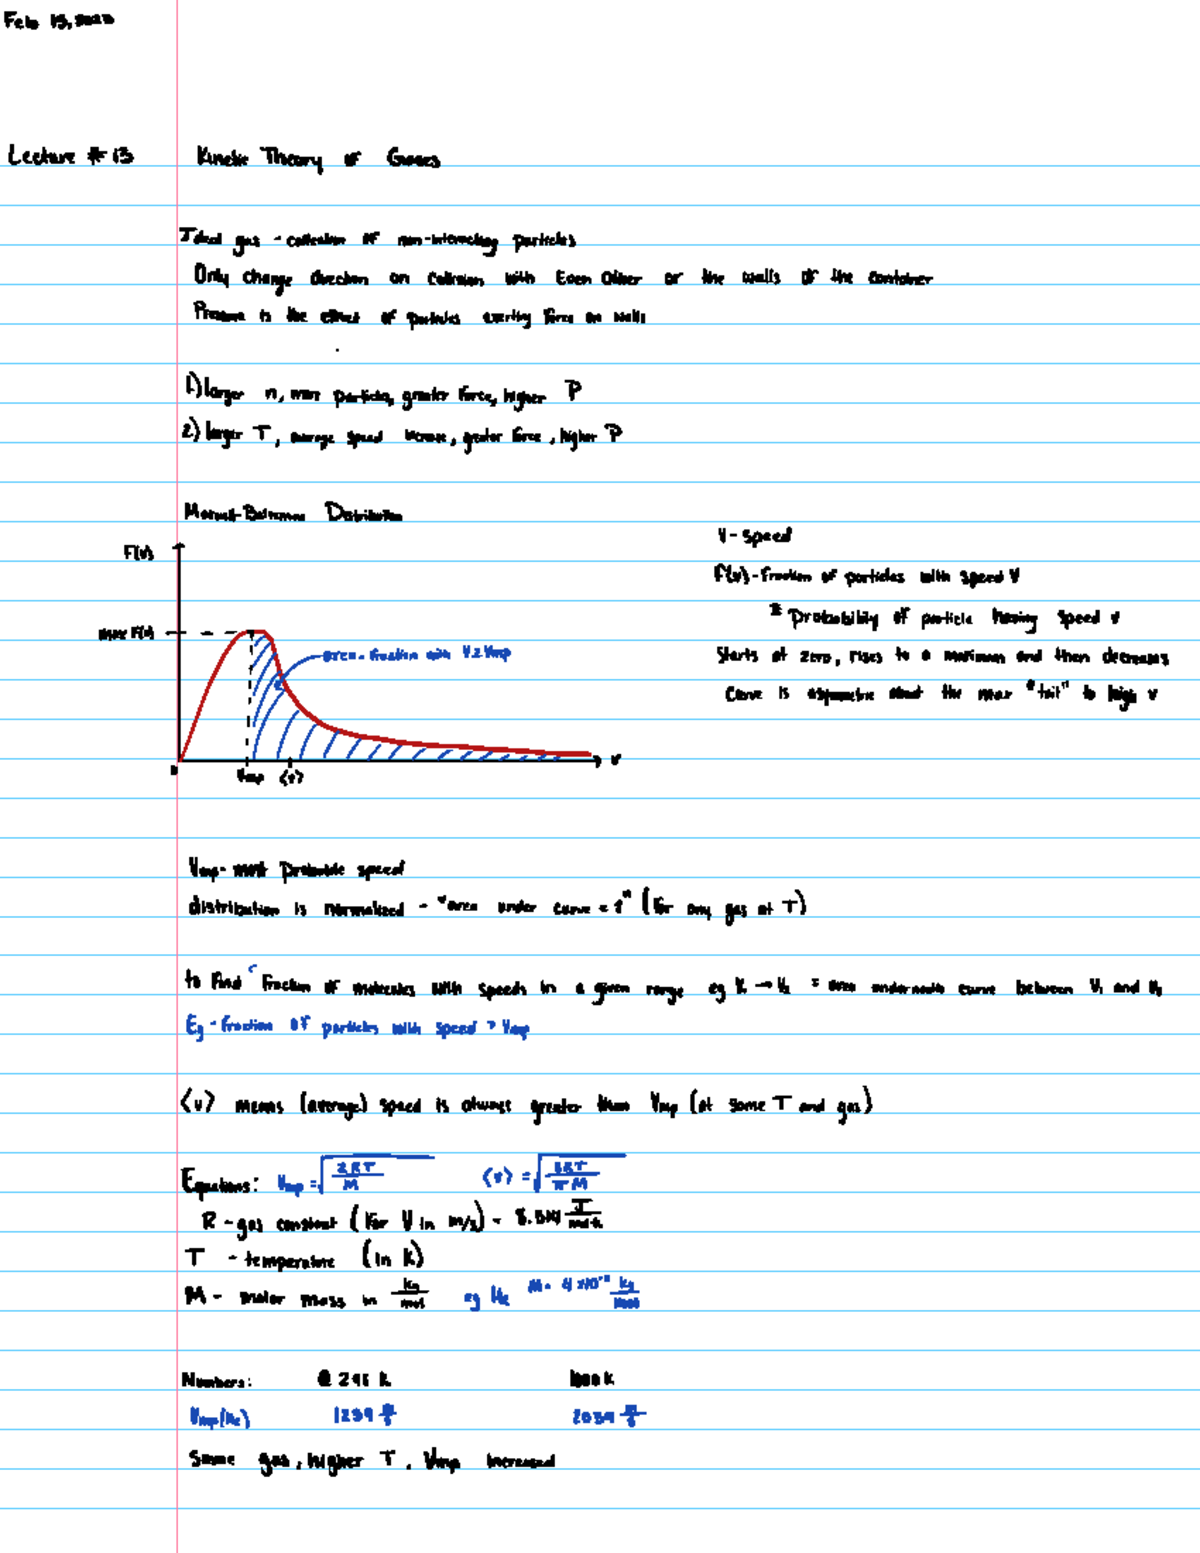 Feb 13, 2023
Lecture # 13 Kinetic Theory of Gases
Ideal gas - collection of non-interacting particles
Only change direction on collision with Each Other or the walls of the container
Pressure is the effect of particles exerting force on walls
1) larger n, more particles, greater force, higher P
2) larger T, average speed increase, greater force, higher P
Maxwell-Boltzmann Distribution
V - speed
F(v)
f(v) - fraction of particles with speed V
Probability of particle having speed v
max F(v)
area = fraction with V ≥ Vmp
Starts at zero, rises to a maximum and then decreases
Curve is asymmetric about the max "tail" to high v
v
Vmp <v>
Vmp - most probable speed
distribution is normalized - "area under curve = 1" (for any gas at T)
to find fraction of molecules with speeds in a given range eg V₁ → V₂ = area underneath curve between V₁ and V₂
Eg - fraction of particles with speed > Vmp
<v> means (average) speed is always greater than Vmp (at same T and gas)
Equations: Vmp = √(2RT/M) <v> = √(8RT/πM)
R - gas constant (for V in m/s) = 8.314 J/mol·k
T - temperature (in K)
M - molar mass in kg/mol eg He M = 4 x10⁻³ kg/mol
Numbers: @ 298 K 1000 K
Vmp(He) 1239 m/s 2039 m/s
Same gas, higher T, Vmp increased